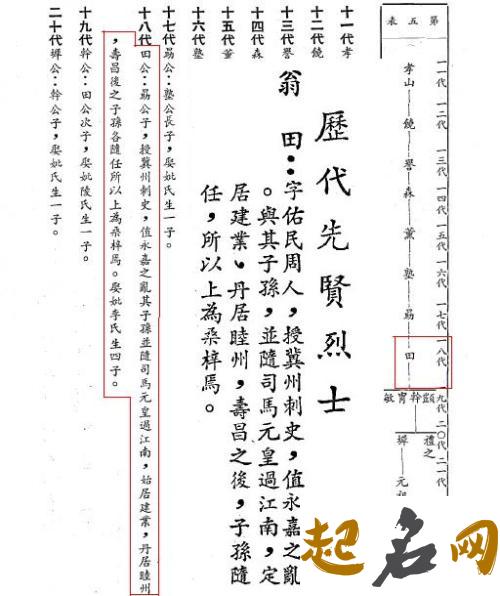 第五表
一一代 一二代 一三代 一四代 一五代 一六代 一七代 一八代 一九代 二〇代 二一代
孝山 饒 譽 森 董 塾 易 田
幹 胄 敏
樨 禮之
歷代先賢烈士
翁田：字佑民周人，授冀州刺史，值永嘉之亂
。與其子孫，並隨司馬元皇過江南，定
居建業、丹居睦州，壽昌之後，子孫隨
任，所以上為桑梓焉。
十一代孝
十二代饒
十三代譽
十四代森
十五代董
十六代塾
十七代易公：塾公長子，娶妣氏生一子。
十八代田公：易公子，授冀州刺史，值永嘉之亂其子孫並隨司馬元皇過江南，始居建業，丹居睦州
，壽昌後之子孫各隨任所以上為桑梓焉。娶妣李氏生四子。
十九代幹公：田公次子，娶妣陵氏生一子。
二十代樨公：幹公子，娶妣氏生一子。
起名网